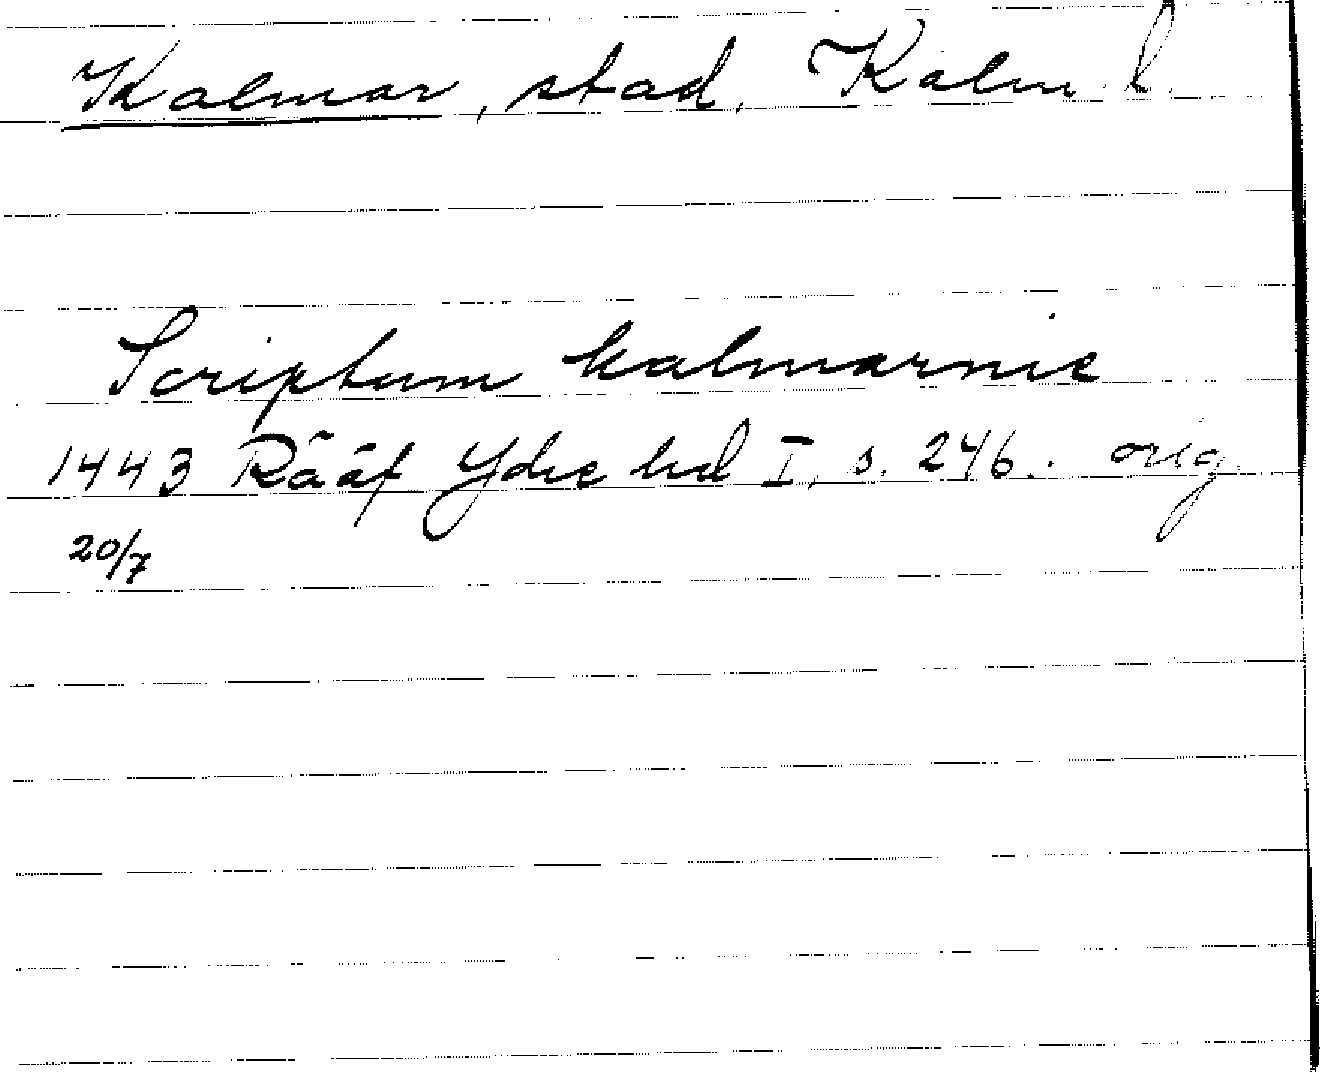 Kalmar, stad, Kalm l.
Scriptum kalmarnie
1443 Rääf Ydre hd I, s. 246. orig
20/7